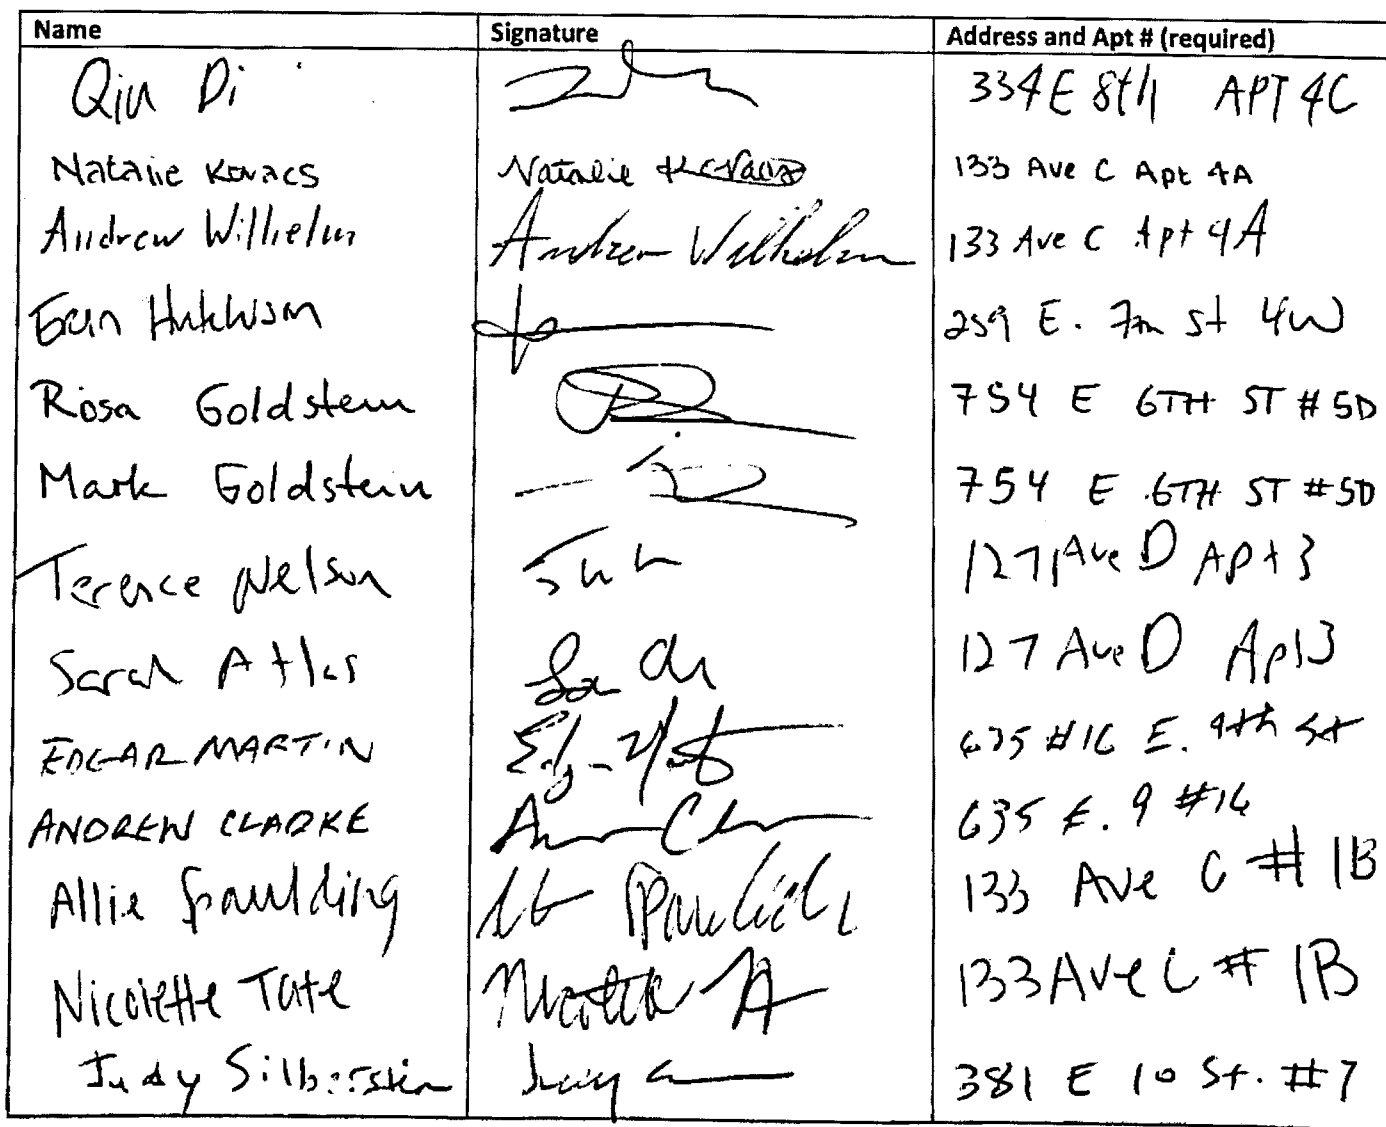 Name Signature Address and Apt # (required)
Qiu Di 334 E 8th APT 4C
Natalie Kovacs Natalie Kovacs 133 Ave C Apt 4A
Andrew Wilhelm Andrew Wilhelm 133 Ave C Apt 4A
Erin Hutchison 259 E. 7th St 4W
Rosa Goldstein 754 E 6TH ST # 5D
Mark Goldstein 754 E 6TH ST # 5D
Terence Nelson 127 Ave D Apt 3
Sarah Atlas 127 Ave D Apt 3
EDGAR MARTIN 635 #16 E. 9th St
ANDREW CLARKE 635 E. 9 #16
Allie Spaulding Spaulding 133 Ave C # 1B
Nicolette Tate Nicolette 133 Ave C # 1B
Judy Silberstein Judy 381 E 10 St. #7